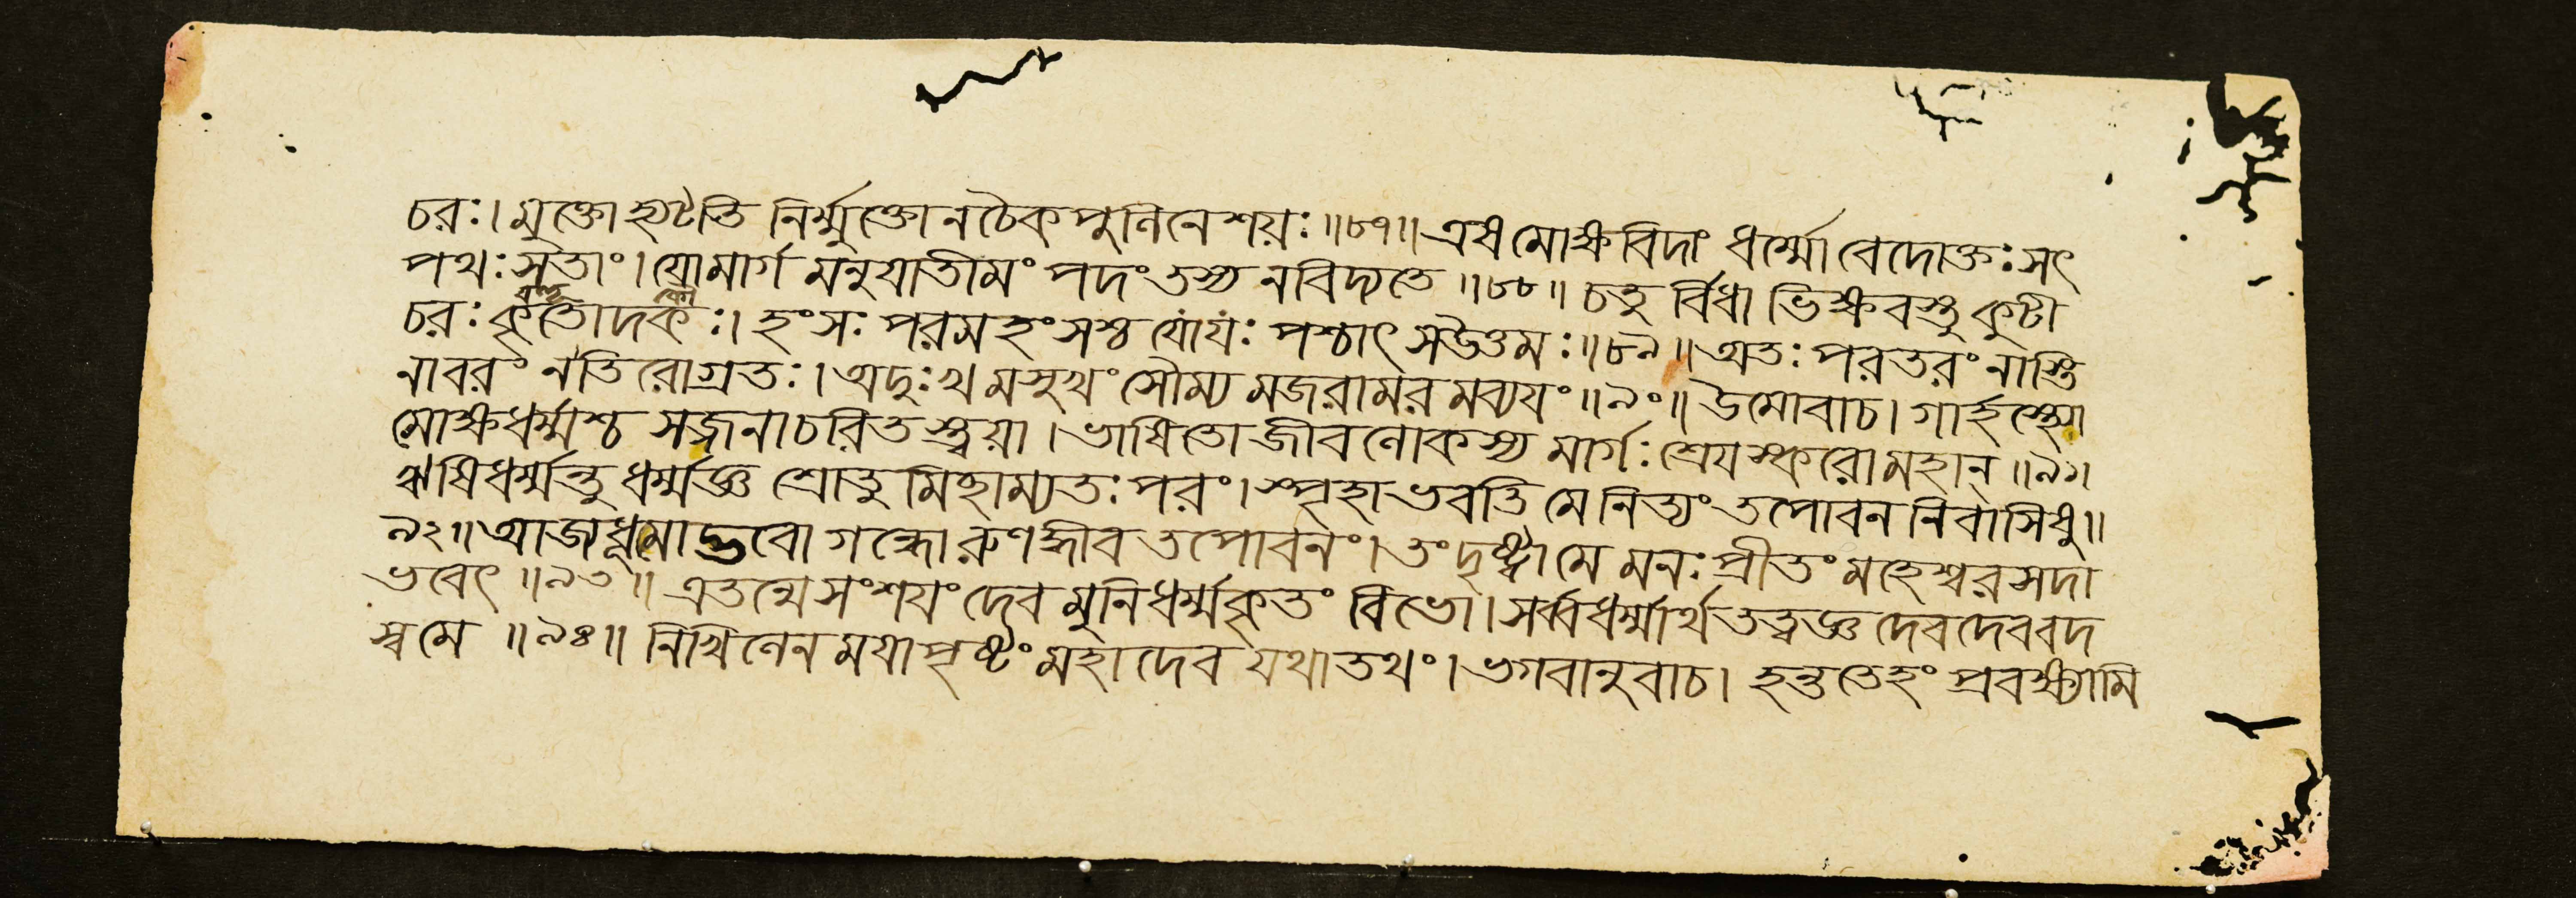 চরঃ। মুক্তোহ্যটতি নির্ম্মুক্তোনচৈকপুলিনেশয়ঃ॥৮৭॥ এষমোক্ষবিদাং ধর্ম্মো বেদোক্তঃ সৎ
পথঃ সতাং। যোমার্গ মনুযাতীমং পদংতস্য নবিদ্যতে॥৮৮॥ চতু র্বিধা ভিক্ষবস্তু কুটী
চরঃ কৃতোদকঃ। হংসঃ পরমহংসশ্চ যোযঃ পশ্চাৎ সউত্তমঃ॥৮৯॥ অতঃ পরতরং নাস্তি
নাবরং নতিরোগ্রতঃ। অদুঃখ মসুখং সৌম্য মজরামর মব্যযং॥৯০॥ উমোবাচ। গার্হস্থ্যো
মোক্ষধর্ম্মশ্চ সজ্জনাচরিতস্ত্বয়া। ভাষিতো জীবলোকস্য মার্গঃ শ্রেযস্করোমহান্॥৯১।
ঋষিধর্ম্মন্তু ধর্ম্মজ্ঞ শ্রোতু মিহাম্যতঃ পরং। স্পৃহা ভবতি মে নিত্যং তপোবন নিবাসিষু॥
৯২॥ আজ্যধূমোদ্ভবো গন্ধোরুণদ্ধীব তপোবনং। তংদৃষ্ট্বা মে মনঃ প্রীতং মহেশ্বর সদা
ভবেৎ॥৯৩॥ এতন্মে সংশযং দেব মুনিধর্ম্মকৃতং বিভো। সর্ব্বধর্ম্মার্থতত্ত্বজ্ঞ দেবদেব বদ
স্বমে॥৯৪॥ নিখিলেন মযাপৃষ্টং মহাদেব যথাতথং। ভগবানুবাচ। হন্ততেহং প্রবক্ষ্যামি